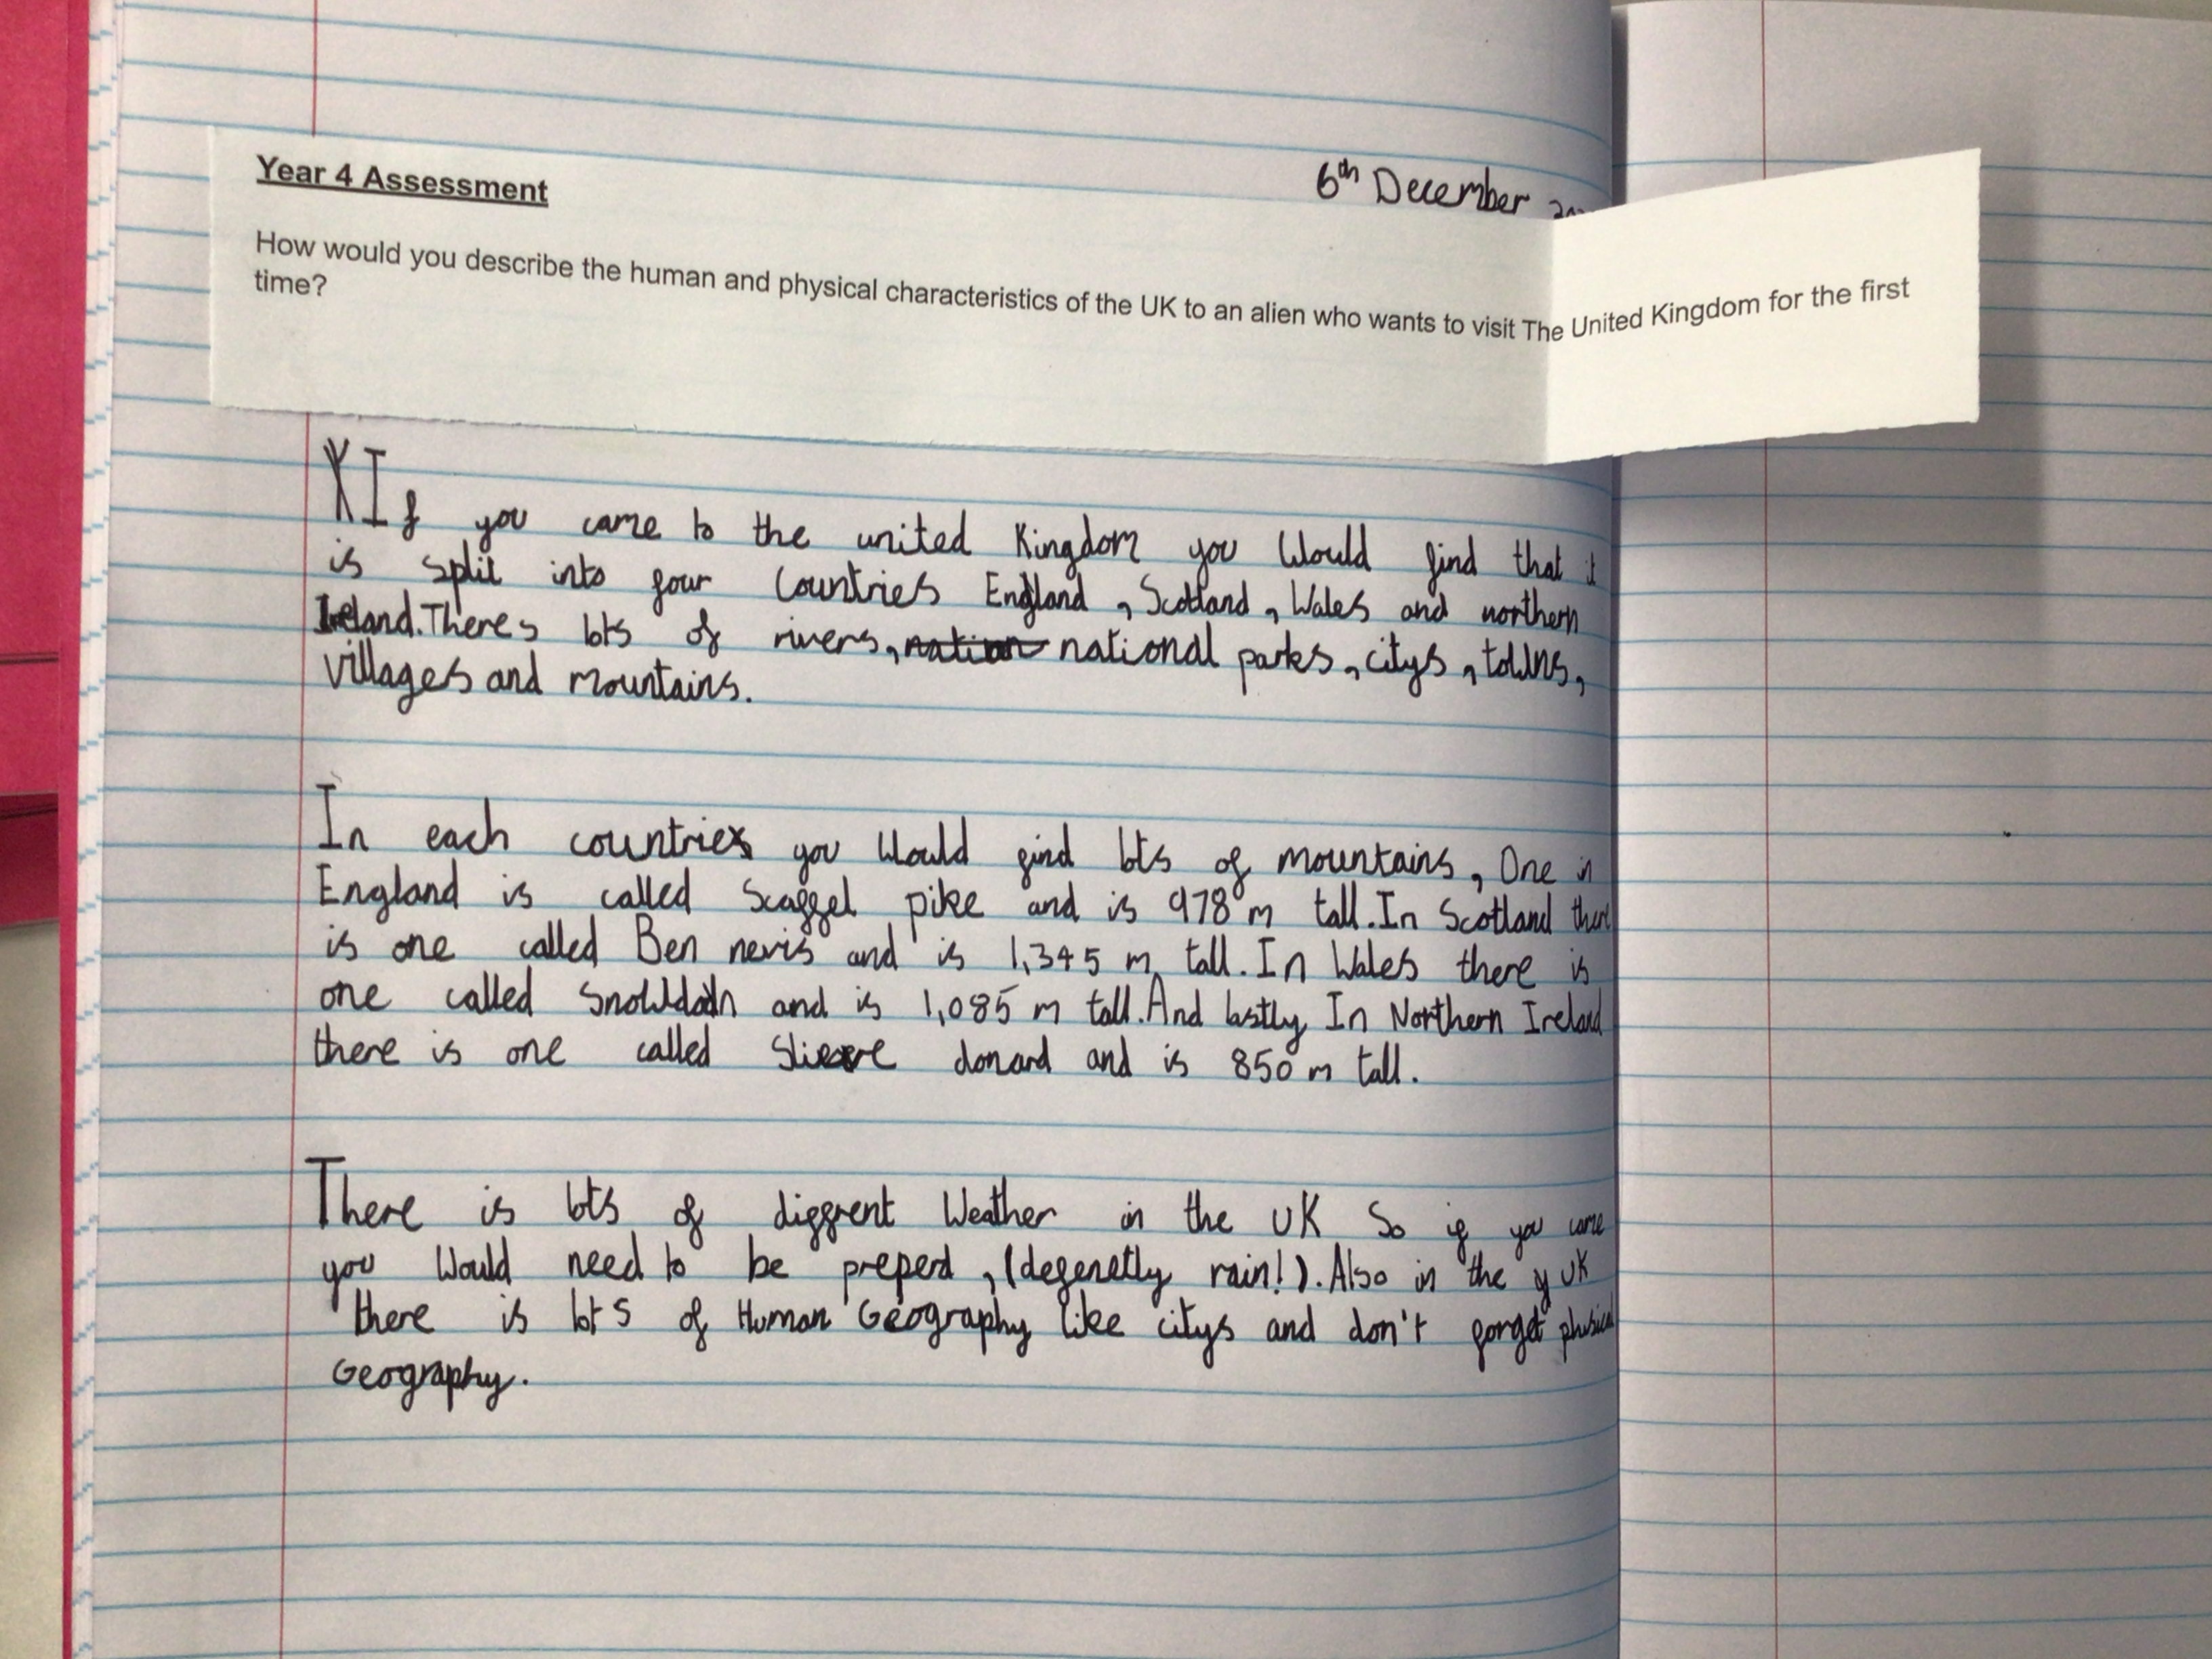 Year 4 Assessment
6th December
How would you describe the human and physical characteristics of the UK to an alien who wants to visit The United Kingdom for the first
time?
If you came to the united Kingdom you Would find that it
is split into four Countries England , Scotland , Wales and northern
Ireland. Theres lots of rivers, nation national parks , citys , towns,
villages and mountains.
In each countries you Would find lots of mountains, One in
England is called Scaffel pike and is 978 m tall. In Scotland there
is one called Ben nevis and is 1,345 m tall. In Wales there is
one called Snowdon and is 1,085 m tall. And lastly In Northern Ireland
there is one called Slieve donard and is 850 m tall.
There is lots of diffrent Weather in the UK So if you came
you Would need to be preperd , (defenetly rain!). Also in the y UK
there is lots of Human Geography like citys and don't forget
Geography.